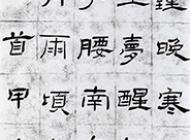 鐘晚寒
夢醒
腰南
雨頃
首甲